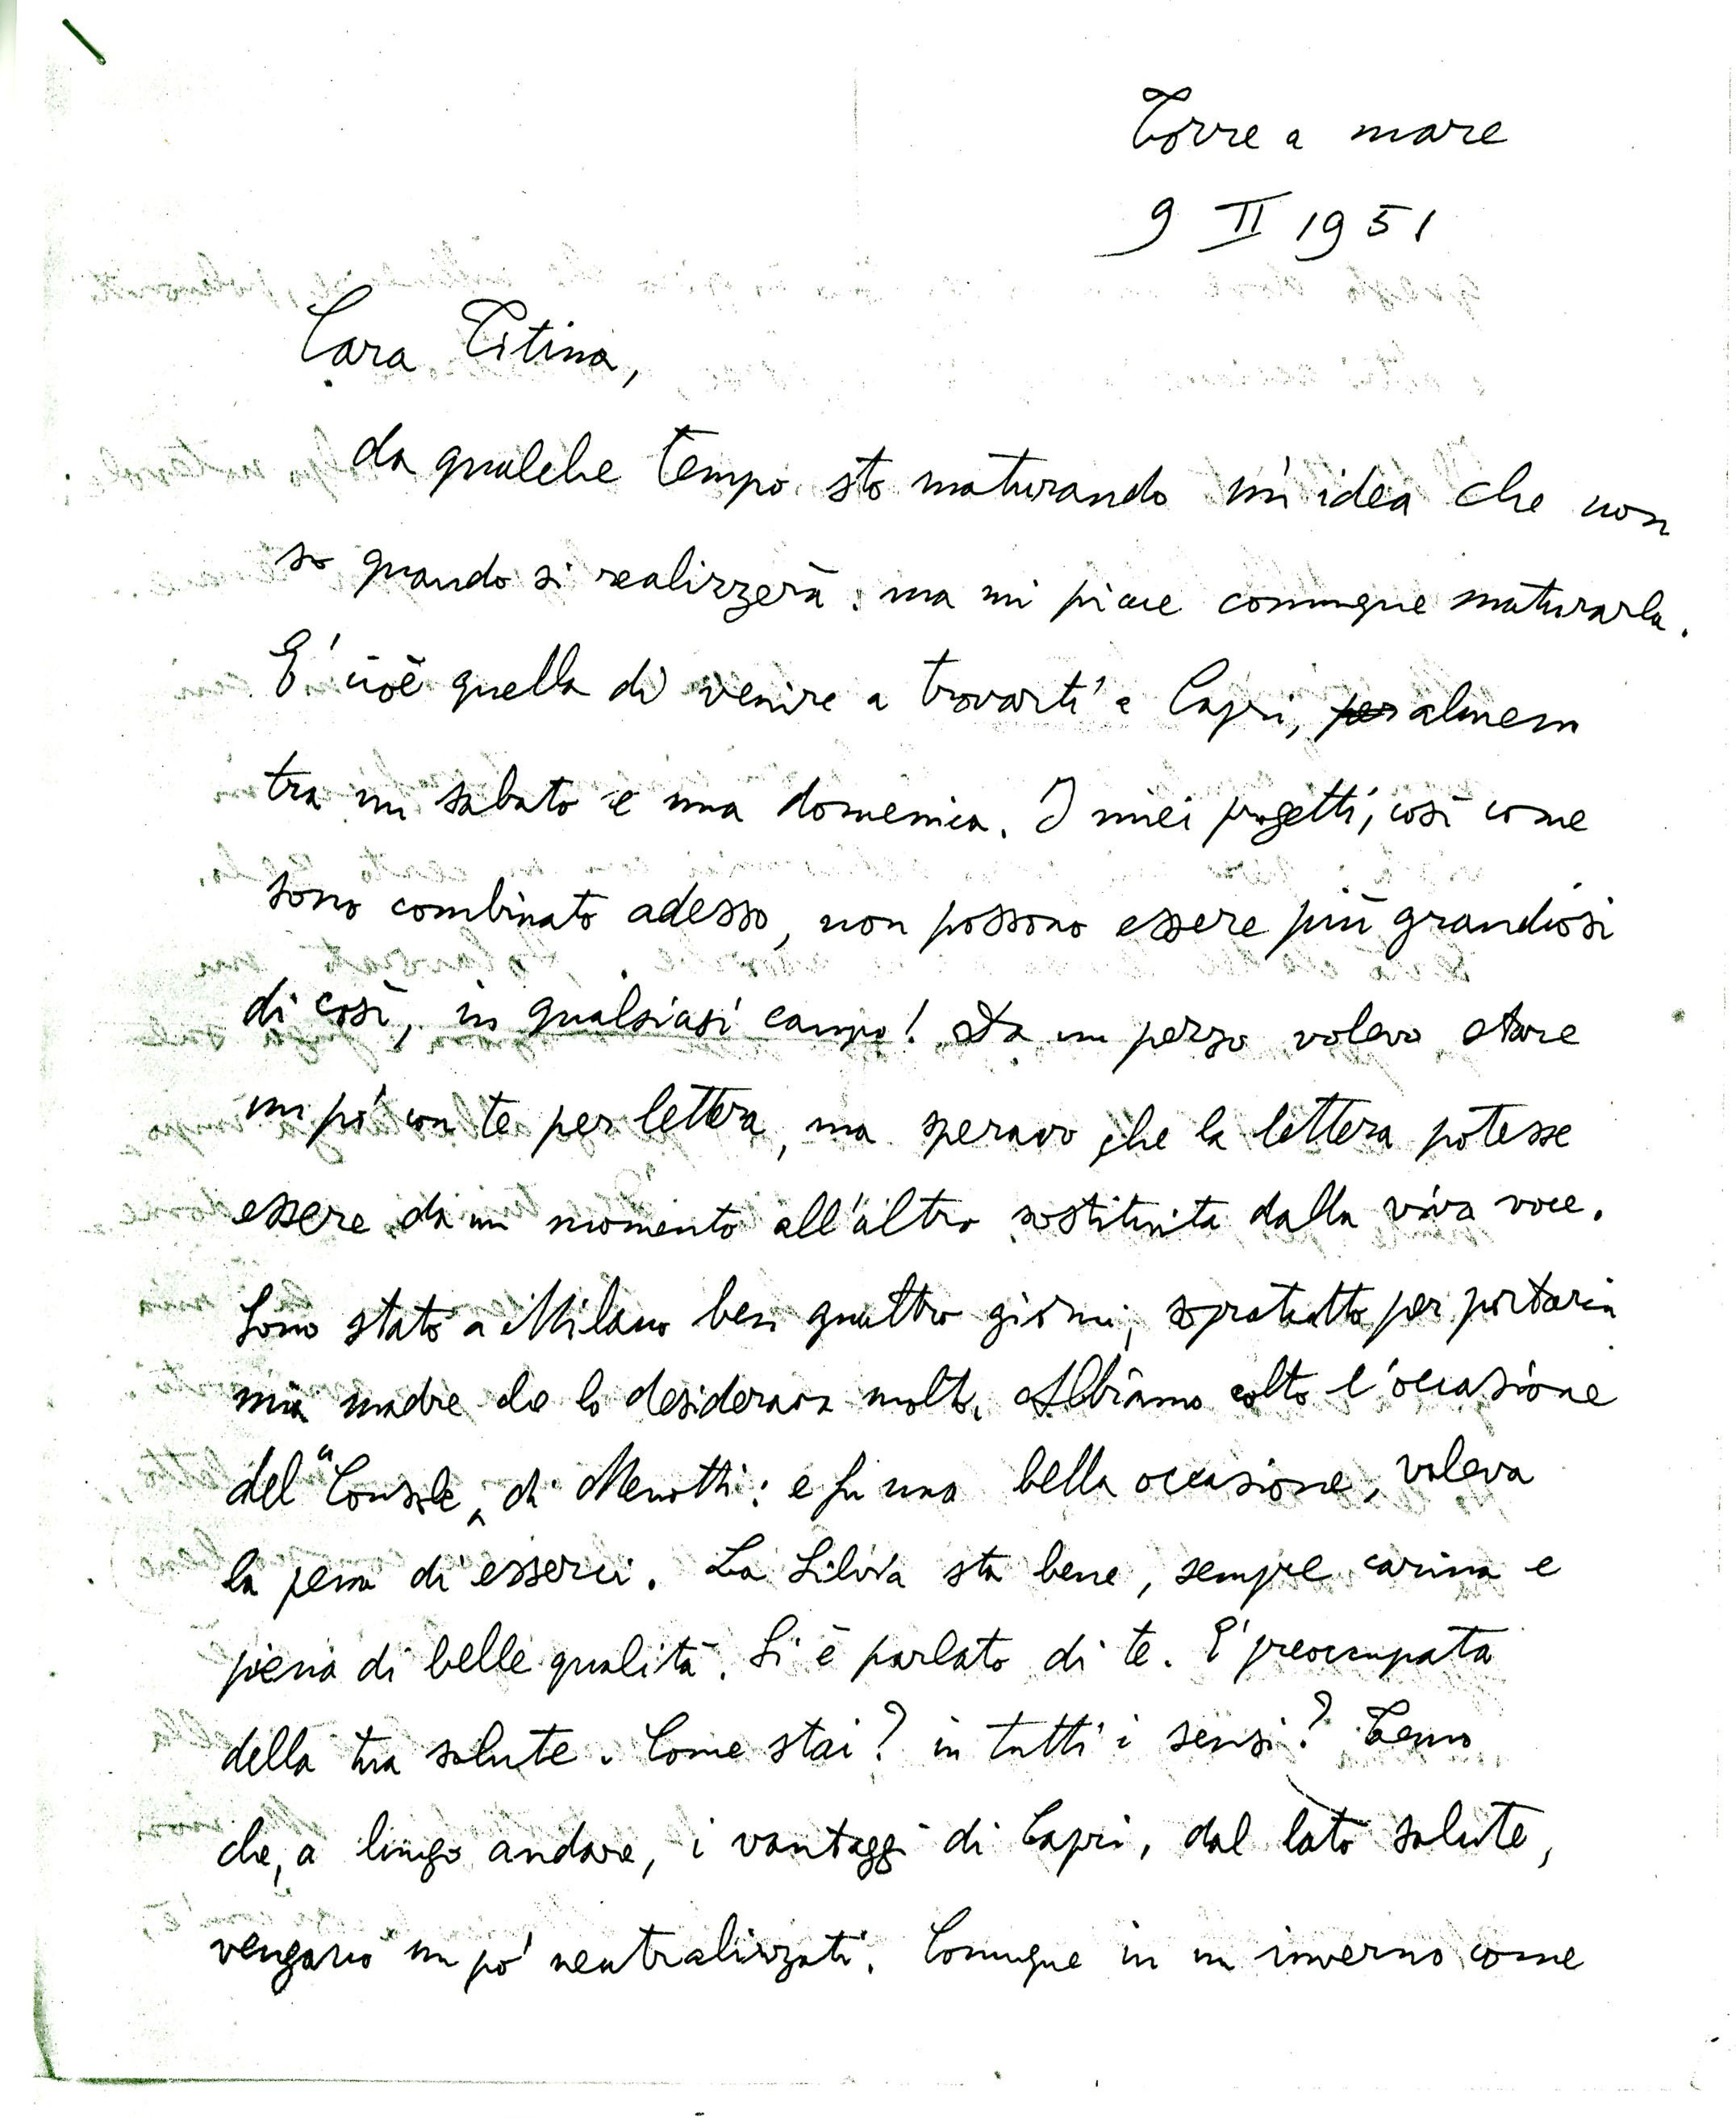 Torre a mare
9 II 1951
Cara Titina,
da qualche tempo sto maturando un'idea che non
so quando si realizzerà: ma mi piace comunque maturarla.
E' cioè quella di venire a trovarti a Capri, per almeno
tra un sabato e una domenica. I miei progetti, così come
sono combinato adesso, non possono essere più grandiosi
di così, in qualsiasi campo! Da un pezzo volevo stare
un po' con te per lettera, ma speravo che la lettera potesse
essere da un momento all'altro sostituita dalla viva voce.
Sono stato a Milano ben quattro giorni, sopratutto per portarci
mia madre che lo desiderava molto. Abbiamo colto l'occasione
del "Console" di Menotti: e fu una bella occasione, valeva
la pena di esserci. La Silvia sta bene, sempre carina e
piena di belle qualità. Si è parlato di te. E' preoccupata
della tua salute. Come stai? in tutti i sensi? Temo
che, a lungo andare, i vantaggi di Capri, dal lato salute,
vengano un po' neutralizzati. Comunque in un inverno come